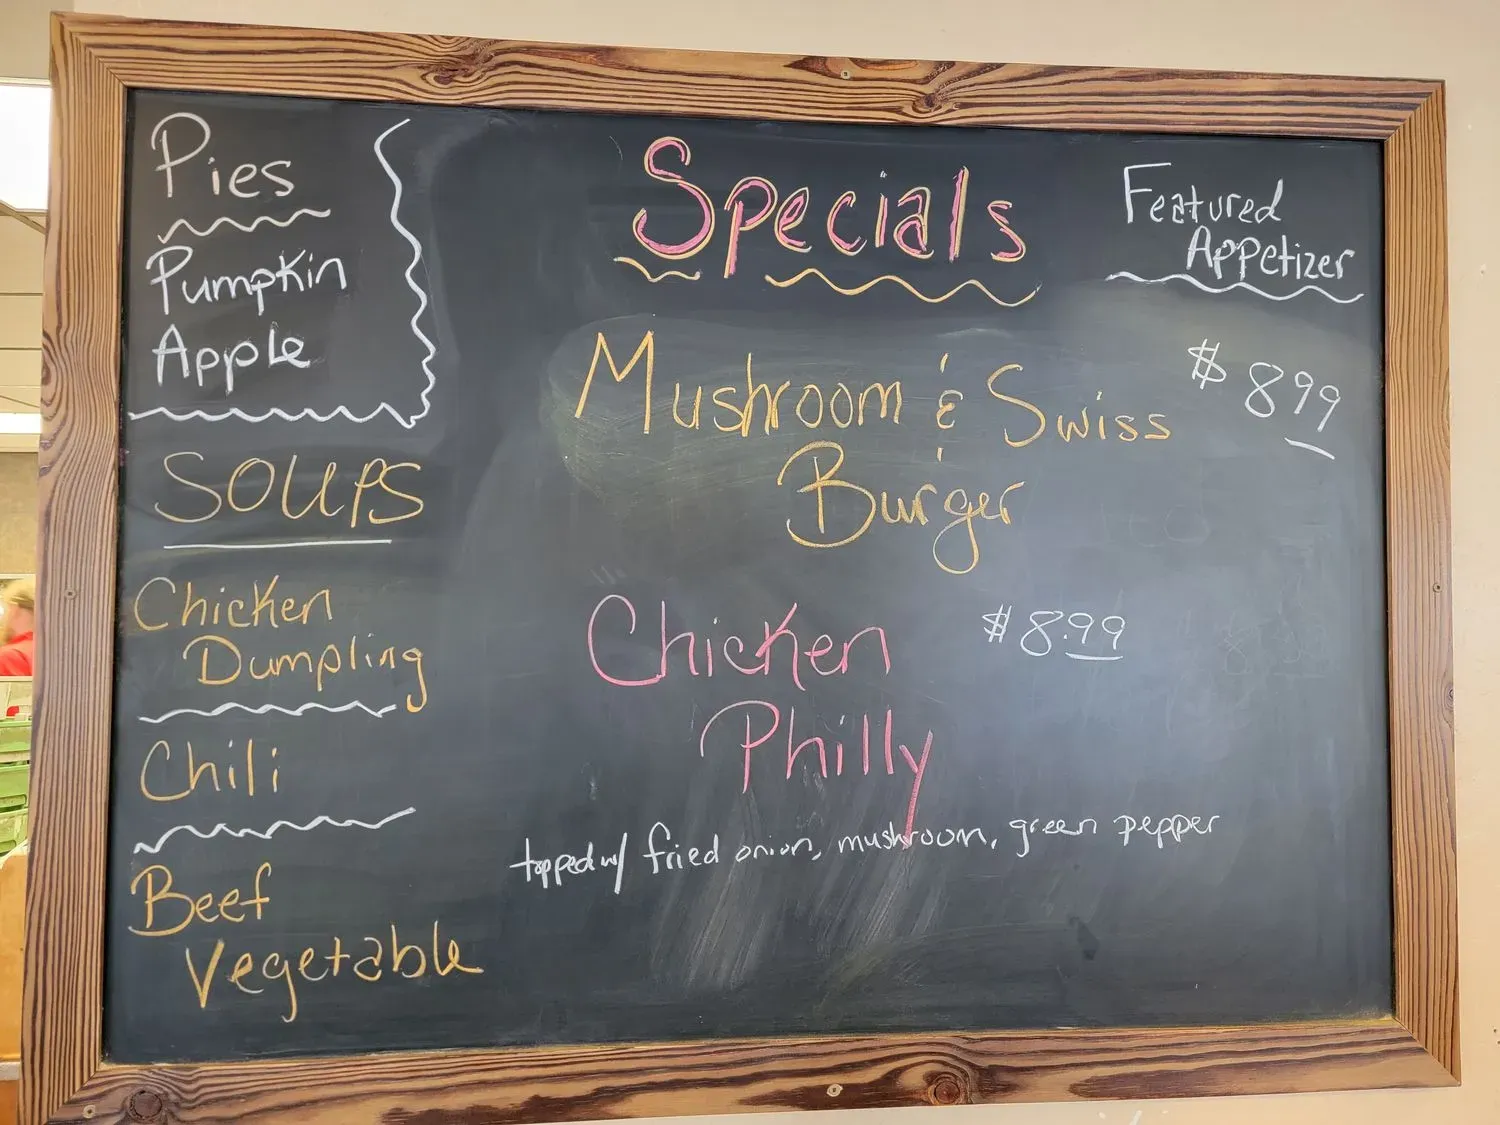 Pies
Pumpkin
Apple
SOUPS
Chicken
Dumpling
Chili
Beef
Vegetable
Specials
Mushroom & Swiss
Burger
$8.99
Chicken
Philly
$8.99
topped w/ fried onion, mushroom, green pepper
Featured
Appetizer